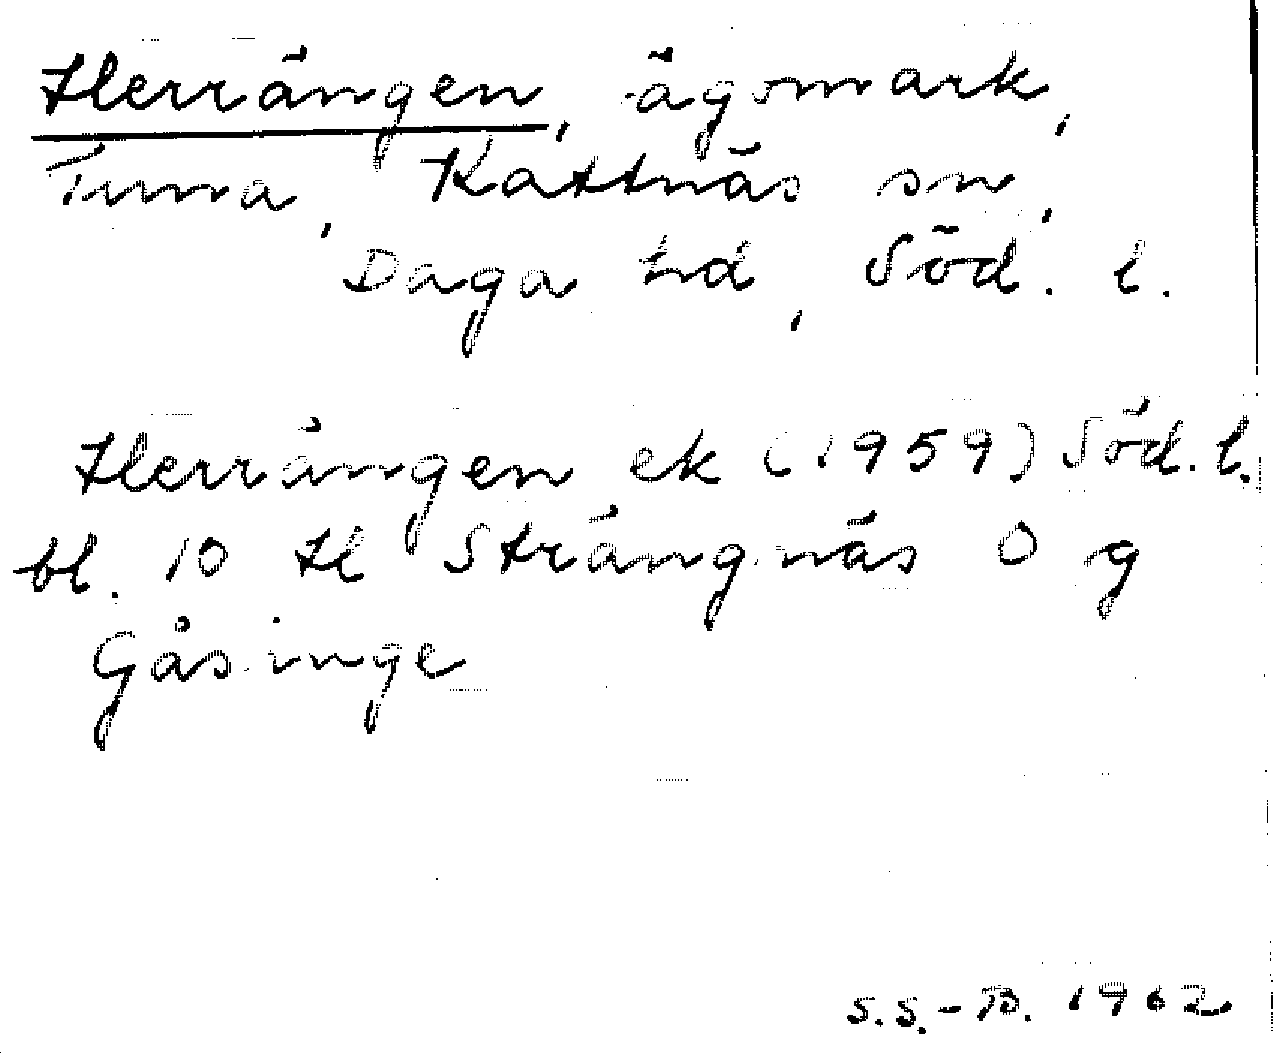 Herrängen, ägomark,
Tuna, Kattnäs sn,
Daga hd, Söd. l.
Herrängen ek (1959) Söd. l.
bl. 10 H Strängnäs O g
Gåsinge
S.S.-B. 1962